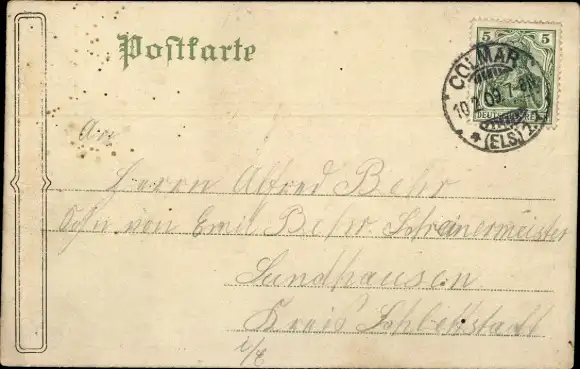 Postkarte
5 5
DEUTSCHES REICH
COLMAR
10.2.09. 7-8N
* (ELS) 2. *
An
Herrn Alfred Behr
Sohn von Emil Behr. Schreinermeister
Sundhausen
Kreis Schlettstadt
i/E